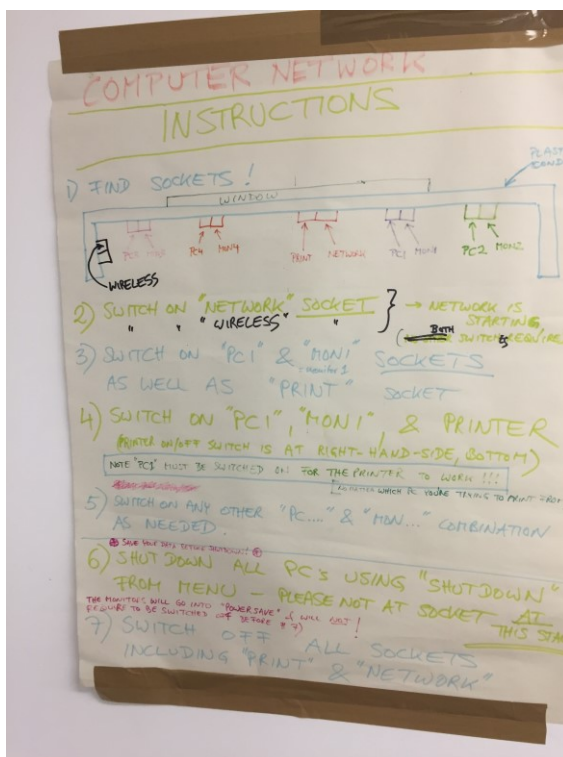 COMPUTER NETWORK
INSTRUCTIONS
PLAST
COND
1) FIND SOCKETS!
WINDOW
PC4 MON4 PRINT NETWORK PC1 PC2 MON2
WIRELESS
2) SWITCH ON "NETWORK" SOCKET → NETWORK IS
" " "WIRELESS" " STARTING,
(BOTH SWITCHES REQUIRE
3) SWITCH ON "PC1" & "MON1" SOCKETS
monitor 1
AS WELL AS "PRINT" SOCKET
4) SWITCH ON "PC1", "MON1", & PRINTER
(PRINTER ON/OFF SWITCH IS AT RIGHT-HAND-SIDE, BOTTOM)
NOTE "PC1" MUST BE SWITCHED ON FOR THE PRINTER TO WORK!!!
NO MATTER WHICH PC YOU'RE TRYING TO PRINT FROM
5) SWITCH ON ANY OTHER "PC...." & "MON..." COMBINATION
AS NEEDED.
SAVE YOUR DATA BEFORE SHUTDOWN!
6) SHUT DOWN ALL PC's USING "SHUTDOWN"
FROM MENU - PLEASE NOT AT SOCKET AT
THIS STA
THE MONITORS WILL GO INTO "POWERSAVE" & WILL STILL
REQUIRE TO BE SWITCHED OFF BEFORE # 7)!
7) SWITCH OFF ALL SOCKETS
INCLUDING "PRINT" & "NETWORK"